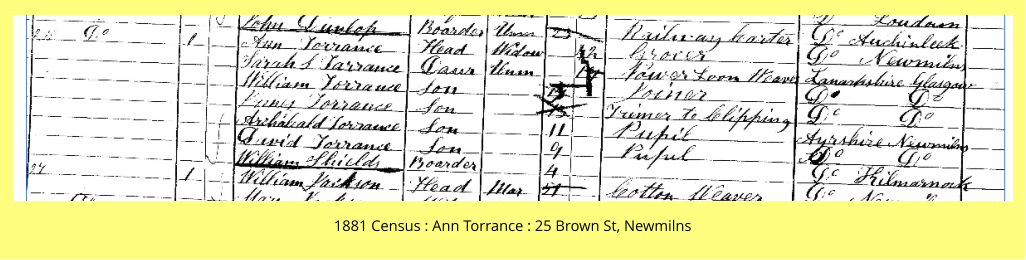 John Dunlop Boarder Unm 23 Do Loudoun
Do 1 Ann Torrance Head Widow 42 Railway Carter Do Auchinleck
Sarah S Torrance Daur Unm Grocer Do Newmilns
William Torrance Son Power Loom Weaver Lanarkshire Glasgow
James Torrance Son 15 Joiner Do Do
Archibald Torrance Son 11 Trimer to Clipping Do Do
David Torrance Son 9 Pupil Ayrshire Newmilns
William Shields Boarder 4 Pupil Do Do
27 1 William Jackson Head Mar Cotton Weaver Do Kilmarnock
1881 Census : Ann Torrance : 25 Brown St, Newmilns